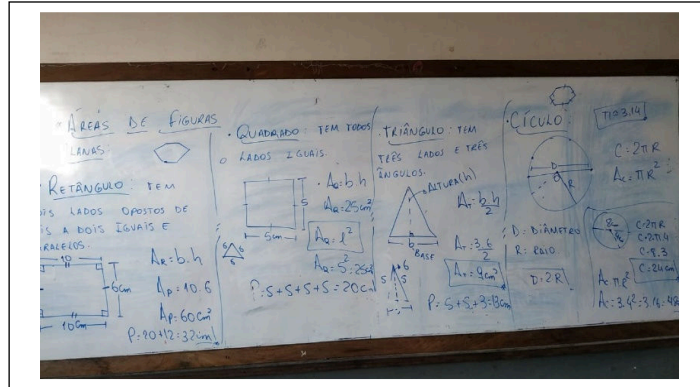 ÁREAS DE FIGURAS
LANAS
RETÂNGULO: TEM
OIS LADOS OPOSTOS DE
IS A DOIS IGUAIS E
RALELOS.
10
6cm
10cm
AR=b.h
AR=10.6
AR=60cm²
P=20+12=32cm
QUADRADO: TEM TODOS
O LADOS IGUAIS.
5
5cm
AQ=b.h
AQ=25cm²
AQ=l²
AQ=5²=25cm²
6 6
6
P=5+5+5+5=20cm
TRIÂNGULO: TEM
TRÊS LADOS E TRÊS
ÂNGULOS.
ALTURA(h)
b
BASE
AT=b.h
2
AT=3.6
2
AT=9cm²
6
5 5
P=5+5+3=13cm
CÍCULO:
π≅3.14
D
R
C=2πR
AC=πR²
D=DIÂMETRO
R=RAIO
D=2R
C=2πR
C=2π4
C=8.3
C=24cm
AC=πR²
AC=3.4²=3.16=48